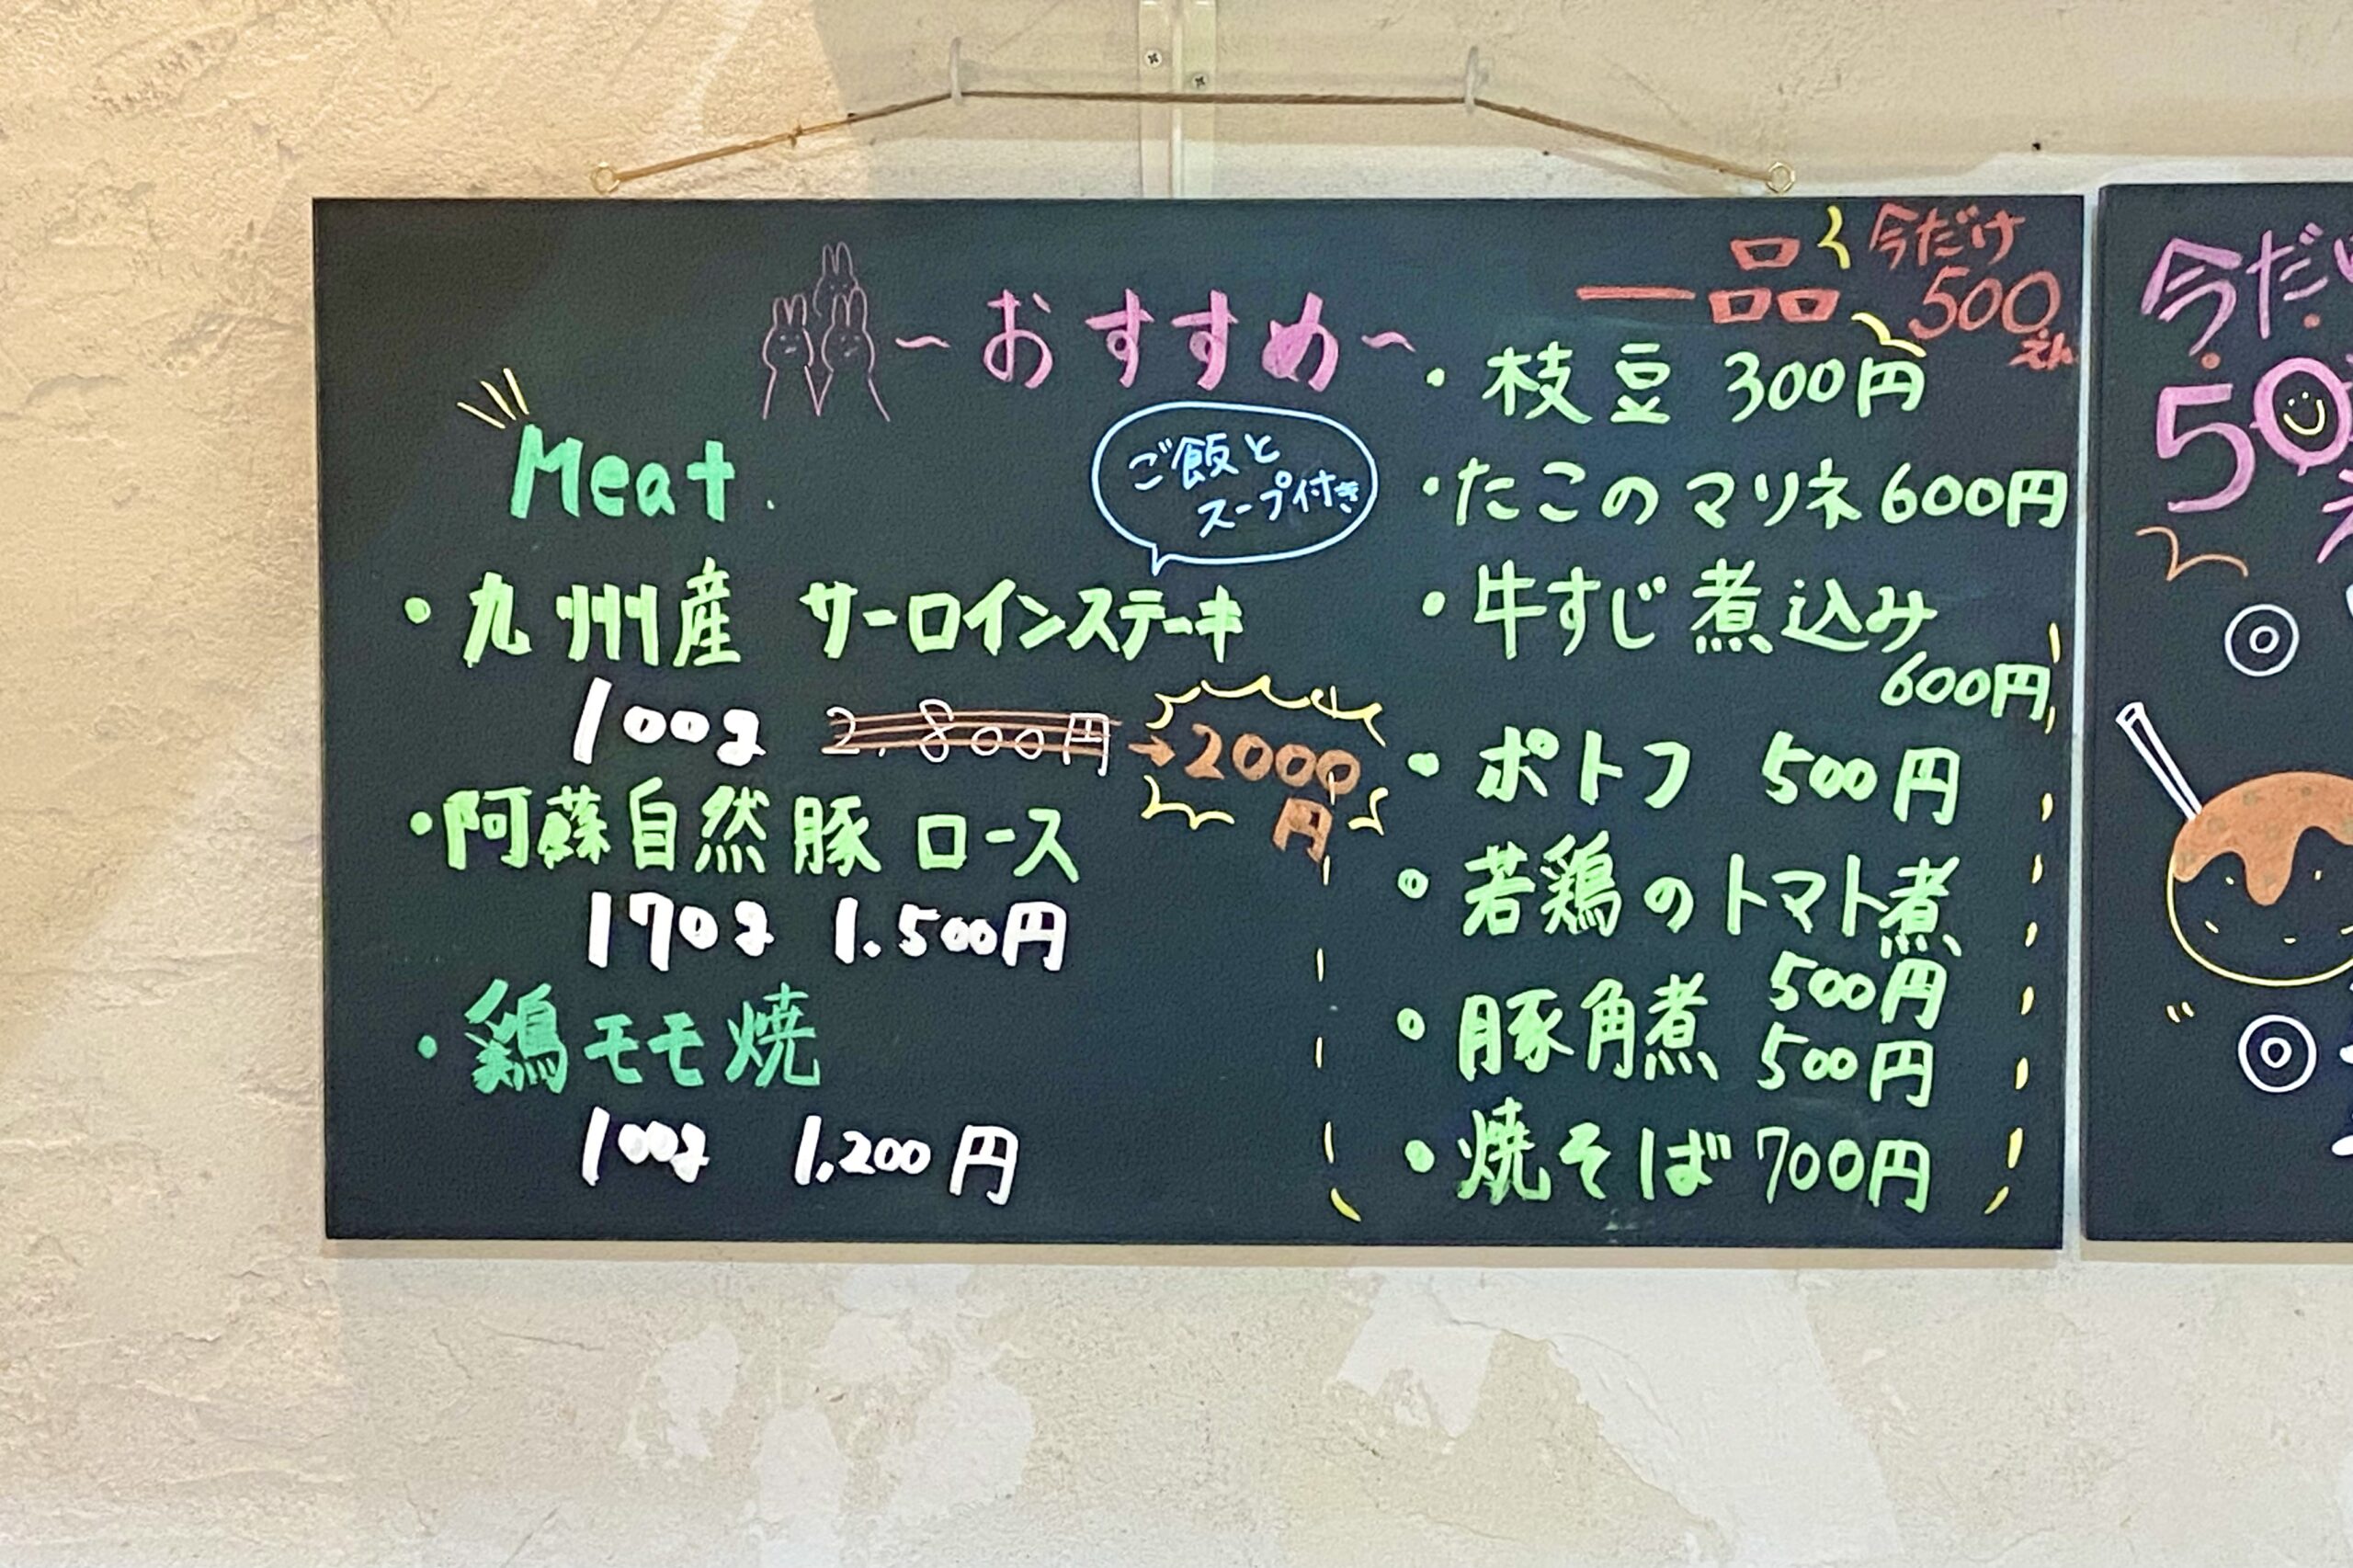 〜おすすめ〜
Meat.
ご飯と
スープ付き
・九州産 サーロインステーキ
100g 2,800円→2000
円
・阿蘇自然豚 ロース
170g 1.500円
・鶏モモ焼
100g 1,200円
一品
今だけ
500
えん
・枝豆 300円
・たこのマリネ 600円
・牛すじ煮込み
600円
・ポトフ 500円
・若鶏のトマト煮
500円
・豚角煮 500円
・焼そば 700円
今だ
50